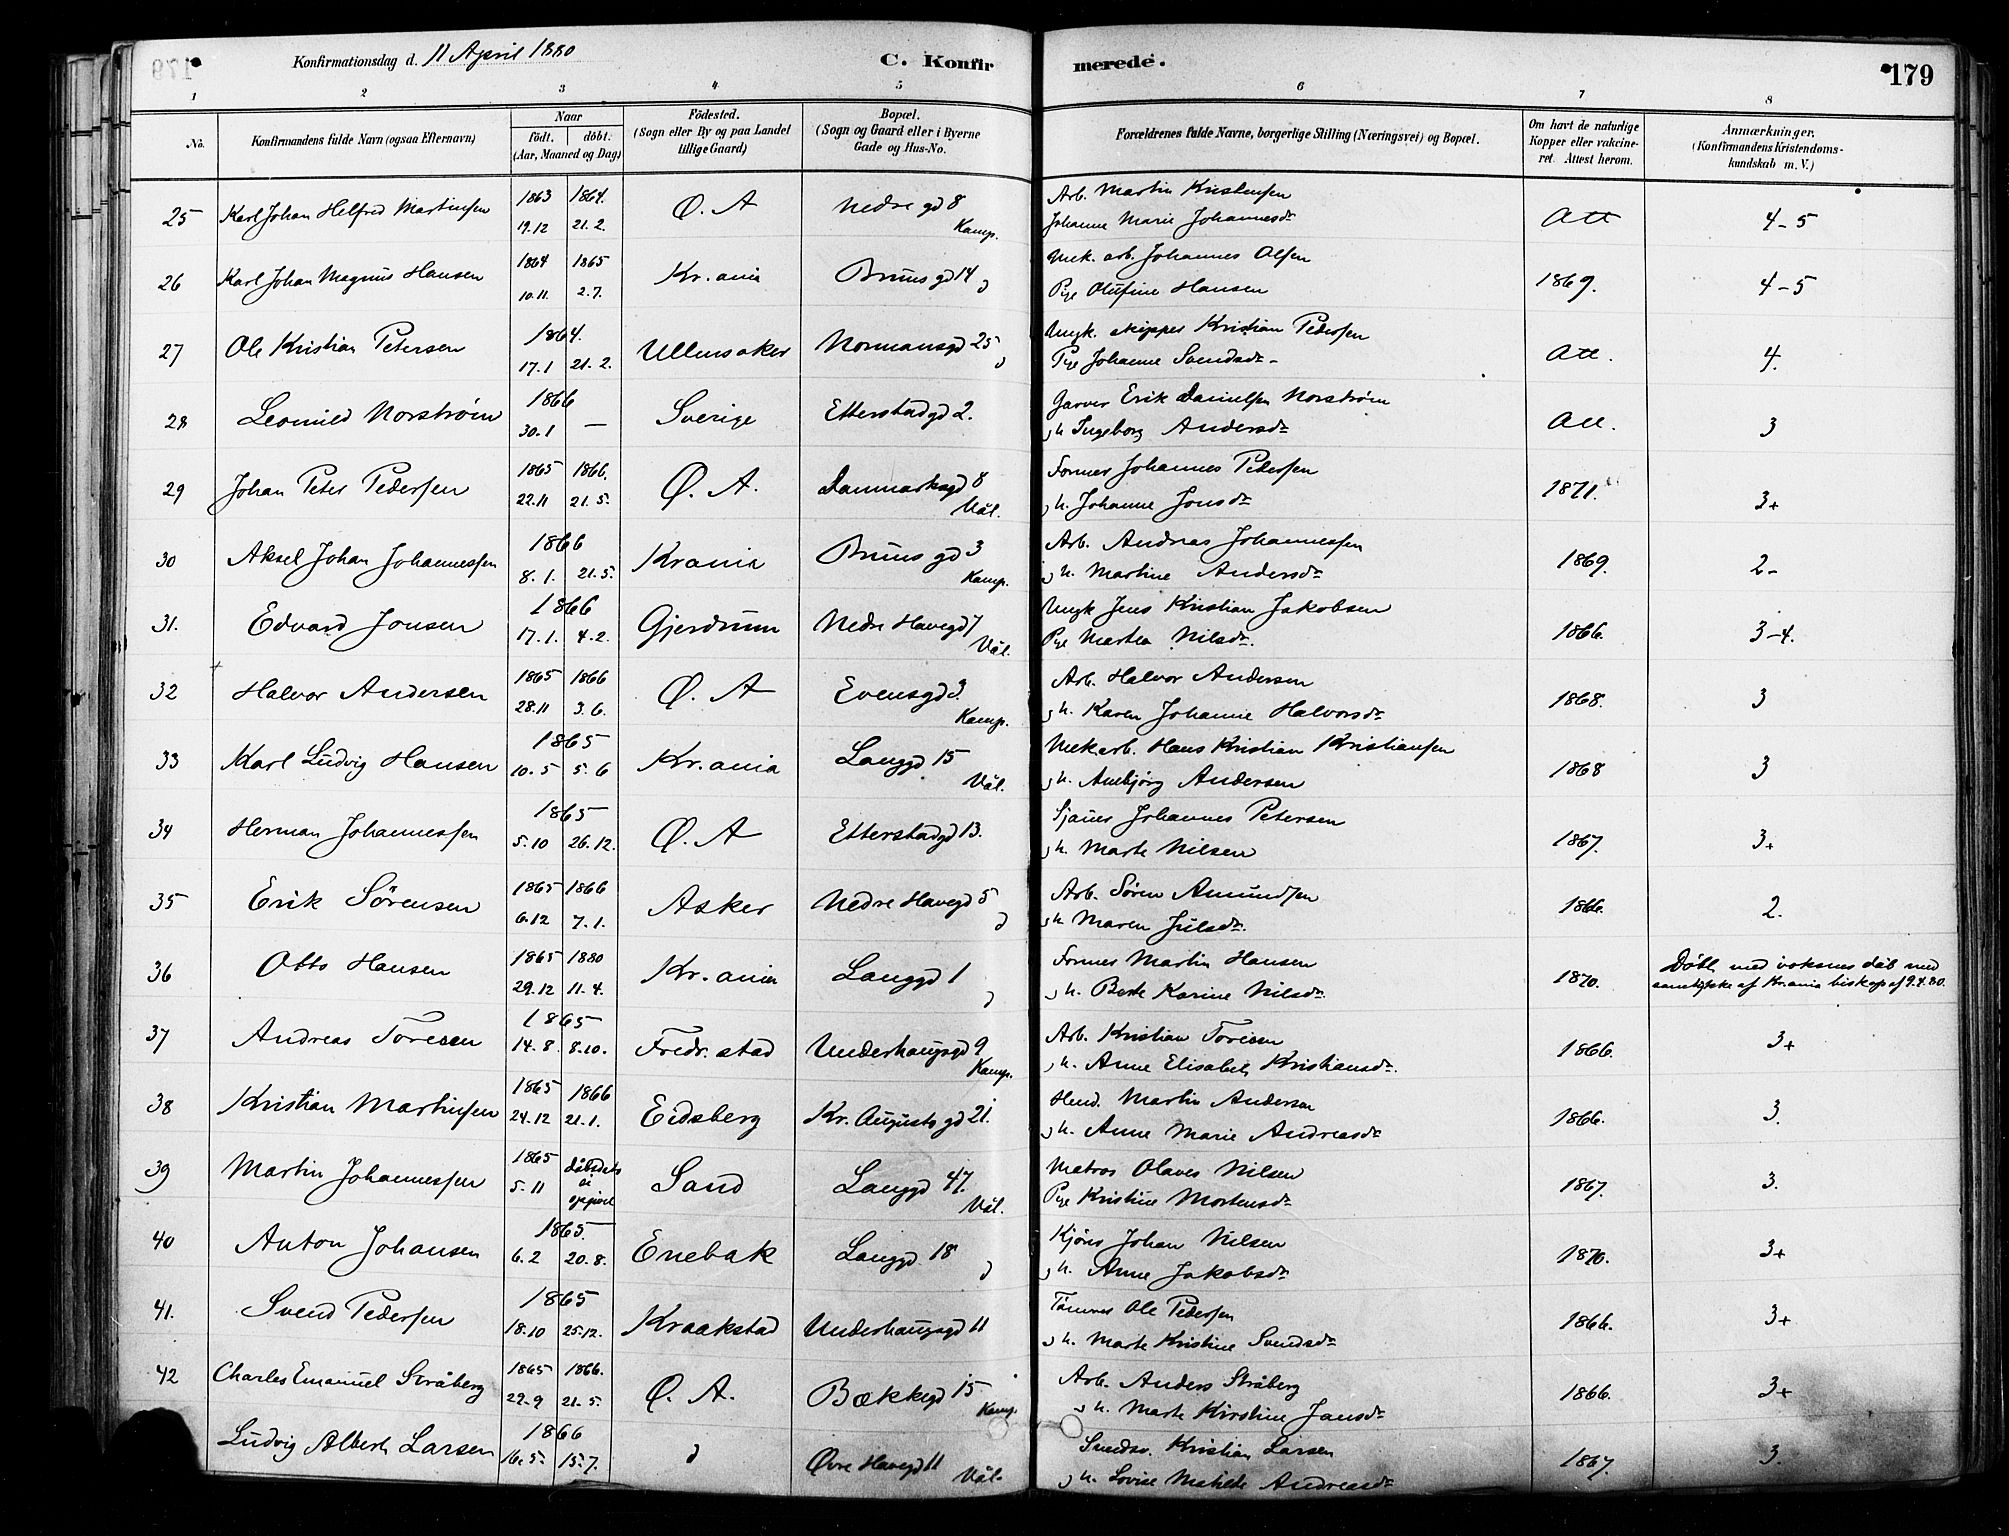 Konfirmationsdag d. 11 April 1880
C. Konfirmerede.
179
1 2 3 4 5 6 7 8
No.
Konfirmandens fulde Navn (ogsaa Efternavn)
Naar
födt. döbt.
(Aar, Maaned og Dag)
Födested.
(Sogn eller By og paa Landet
tillige Gaard)
Bopæl.
(Sogn og Gaard eller i Byerne
Gade og Hus-No.
Forældrenes fulde Navne, borgerlige Stilling (Næringsvei) og Bopæl.
Om havt de naturlige
Kopper eller vakcine-
ret. Attest herom.
Anmærkninger.
(Konfirmandens Kristendoms-
kundskab m. V.)
25 Karl Johan Helfred Martinsen 1863 19.12 1864. 21.2. Ø. A Nedre gd 8 Kamp. Arb. Martin Kristensen
Johanne Marie Johannesdr Att 4-5
26 Karl Johan Magnus Hansen 1864 10.11. 1865 2.7. Kr.ania Bruns gd 14 Mek. arb. Johannes Olsen
Pige Olufine Hansen 1869. 4-5
27 Ole Kristian Petersen 1864. 17.1 21.2. Ullensaker Normansgd 25 Ungk. skipper Kristian Pedersen
Pige Johanne Svendsdr Att. 4.
28 Leonild Norström 1866 30.1 — Sverige Etterstadgd 2. Garver Erik Danielsen Norström
h. Ingeborg Andersdr Att. 3
29 Johan Peter Pedersen 1865 22.11 1866. 21.5. Ø. A. Danmarksgd 8 Vål. Former Johannes Pedersen
h. Johanne Jonsdr 1871. 3+
30 Aksel Johan Johannessen 1866 8.1. 21.5. Krania Bruns gd 3 Kamp. Arb. Andreas Johannessen
h. Martine Andersdr 1869. 2-
31. Edvard Jonsen 1866 17.1. 4.2. Gjerdrum Nedre Havegd 7 Vål. Ungk Jens Kristian Jakobsen
Pige Martea Nilsdr. 1866. 3-4.
32 Halvor Andersen 1865 28.11 1866 3.6. Ø. A Evensgd 3. Kamp. Arb. Halvor Andersen
h. Karen Johanne Halvorsdr 1868. 3
33 Karl Ludvig Hansen 1865 10.5 5.6 Kr.ania Langgd 15 Vål. Mekarb. Hans Kristian Kristiansen
h. Anebjörg Andersen 1868 3
34 Herman Johannessen 1865 5.10 26.12. Ø. A Etterstadgd 13. Sjauer Johannes Petersen
h. Marte Nilsen 1867. 3+
35 Erik Sörensen 1865 6.12 1866 7.1. Asker Nedre Havegd 5 Arb. Sören Amundsen
h Maren Julsdr. 1866. 2.
36 Otto Hansen 1865 29.12 1880 11.4. Kr.ania Langgd 1 Former Martin Hansen
h. Berte Karine Nilsdr. 1870. Döbt med voksnes dåb med
samtykke af Kr.ania biskop af 9.4.80.
37 Andreas Toresen 1865 14.8. 8.10. Fredr.stad Underhaugsgd 9 Kamp. Arb. Kristian Toresen
h. Anne Elisabeth Kristiansdr. 1866. 3+
38 Kristian Martinsen 1865 24.12 1866 21.1. Eidsberg Kr. Augusts gd 21. Hand. Martin Andersen
h. Anne Marie Andreasdr 1866. 3.
39 Martin Johannessen 1865 5.11 dåbsdato ei opgivet Sand Langgd 47. Vål. Matros Olaves Nilsen
Pige Kristine Mortensdr 1867. 3.
40 Anton Johansen 1865. 6.2 20.8. Enebak Langgd 18 Kjörer Johan Nilsen
h. Anne Jakobsdr 1870. 3+
41. Svend Pedersen 1865 18.10 25.12. Kraakstad Underhaugsgd 11 Tömmer Ole Pedersen
h. Marte Kristine Svendsdr 1866. 3+
42 Charles Emanuel Stråberg 1865 22.9 1866. 21.5. Ø. A. Bækkegd 15 Kamp. Arb. Anders Stråberg
h. Marte Kirstine Jansdr 1866. 3+
Ludvig Albert Larsen 1866 16.5 15.7. Øvre Havegd 11 Vål. Kristian Larsen
h. Lovise Matilde Andreasdr 1867. 3.